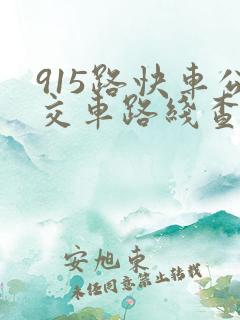 915路快車公
交車路綫查
安旭東
未任同意禁止转载